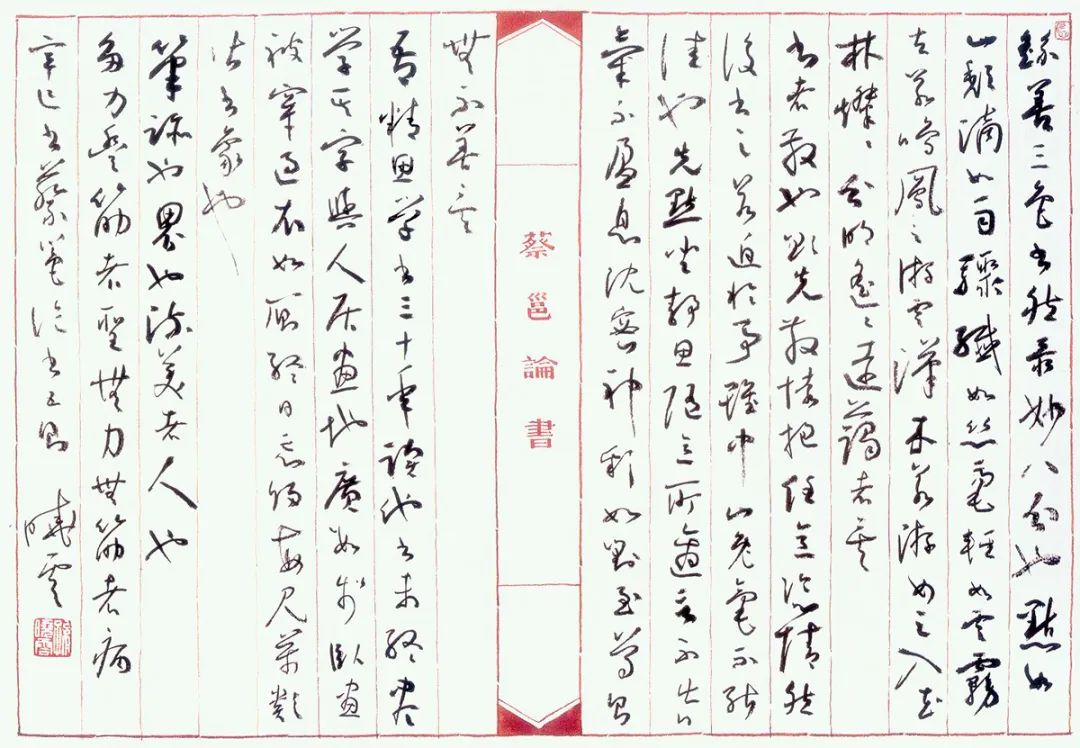 繇善三色書然最妙八分也點如
山頹滴如雨驟纖如絲毫輕如雲霧
去若鳴鳳之游雲漢来若游女之入花
林燦々分明遙々遠藹者矣
書者散也欲先散懷抱任意恣情然
後書之若迫於事雖中山兔毫不能
佳也先默坐靜思隨意所適言不出口
氣不盈息沈密神彩如對至尊則
蔡邕論書
無不善矣
吾精思學書三十年讀他書未終盡
學其字與人居畫地廣數步臥畫
被穿過表如厠終日忘歸每見萬類
皆書象也
筆跡也界也流美者人也
多力豐筋者聖無力無筋者病
辛巳書蔡邕論書五則 曉雲